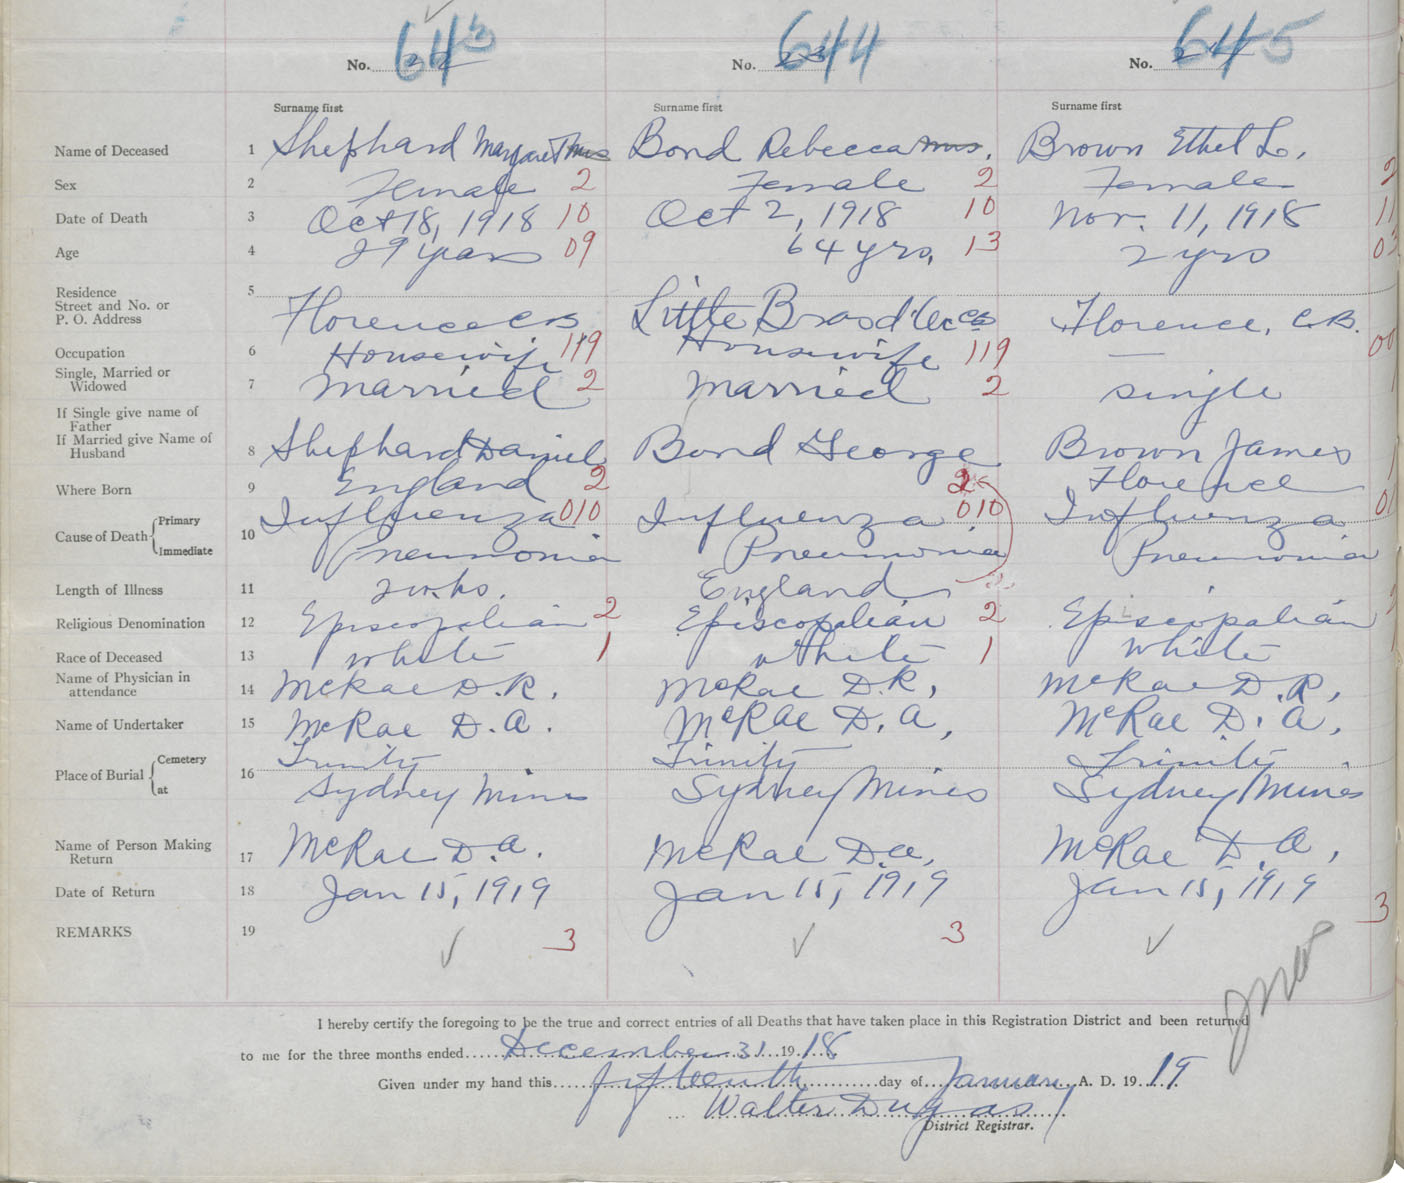 643 644 645
No. 22 No. 23 No. 24
Surname first Surname first Surname first
Name of Deceased 1 Shephard Margaret Mrs Bond Rebecca Mrs. Brown Ethel L.
Sex 2 Female 2 Female 2 Female 2
Date of Death 3 Oct 18, 1918 10 Oct 2, 1918 10 Nov. 11, 1918 11
Age 4 29 years 09 64 yrs. 13 2 yrs 03
Residence 5
Street and No. or
P. O. Address Florence CB Little Brasd'Or CB Florence, C.B.
Occupation 6 Housewife 119 Housewife 119 — 00
Single, Married or
Widowed 7 Married 2 Married 2 Single 1
If Single give name of
Father
If Married give Name of
Husband 8 Shephard Daniel Bond George Brown James
Where Born 9 England 2 2 Florence 1
Cause of Death Primary Influenza 010 Influenza 010 Influenza 01
Immediate 10 Pneumonia Pneumonia Pneumonia
Length of Illness 11 2 wks. England
Religious Denomination 12 Episcopalian 2 Episcopalian 2 Episcopalian 2
Race of Deceased 13 White 1 White 1 White 1
Name of Physician in
attendance 14 McRae D. R. McRae D. R, McRae D. R,
Name of Undertaker 15 McRae D. A. McRae D. A, McRae D. A,
Place of Burial Cemetery 16 Trinity Trinity Trinity
at Sydney Mines Sydney Mines Sydney Mines
Name of Person Making
Return 17 McRae D. A. McRae D. A, McRae D. A,
Date of Return 18 Jan 15, 1919 Jan 15, 1919 Jan 15, 1919
REMARKS 19 ✓ 3 ✓ 3 ✓ 3
I hereby certify the foregoing to be the true and correct entries of all Deaths that have taken place in this Registration District and been returned
to me for the three months ended December 31 1918
Given under my hand this fifteenth day of January A. D. 1919
Walter Dugas
District Registrar.